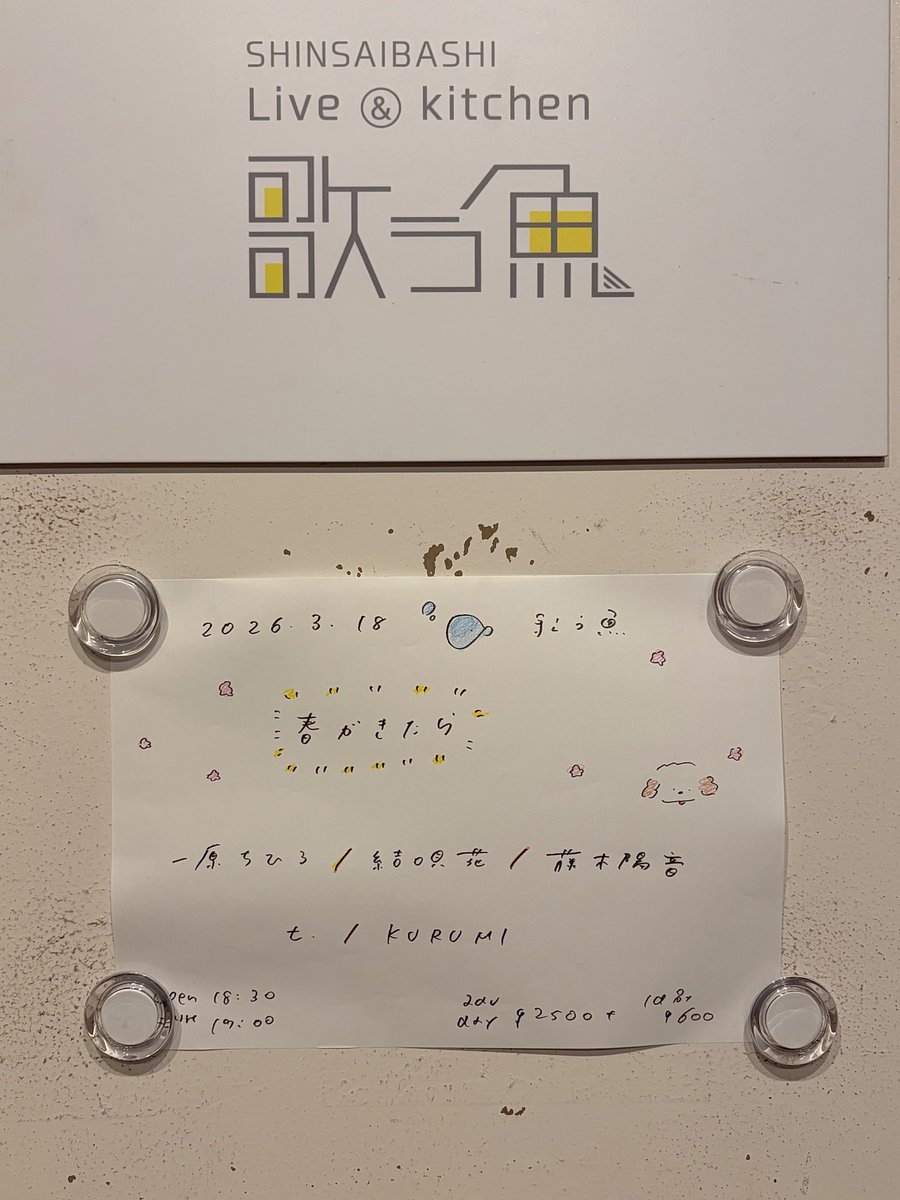 SHINSAIBASHI
Live & kitchen
歌う魚
2026.3.18 歌う魚
春がきたら
一原ちひろ / 結咲花 / 藤木陽音
t. / KURUMI
open 18:30
19:00
adv
day ¥2500 +
1d ¥600